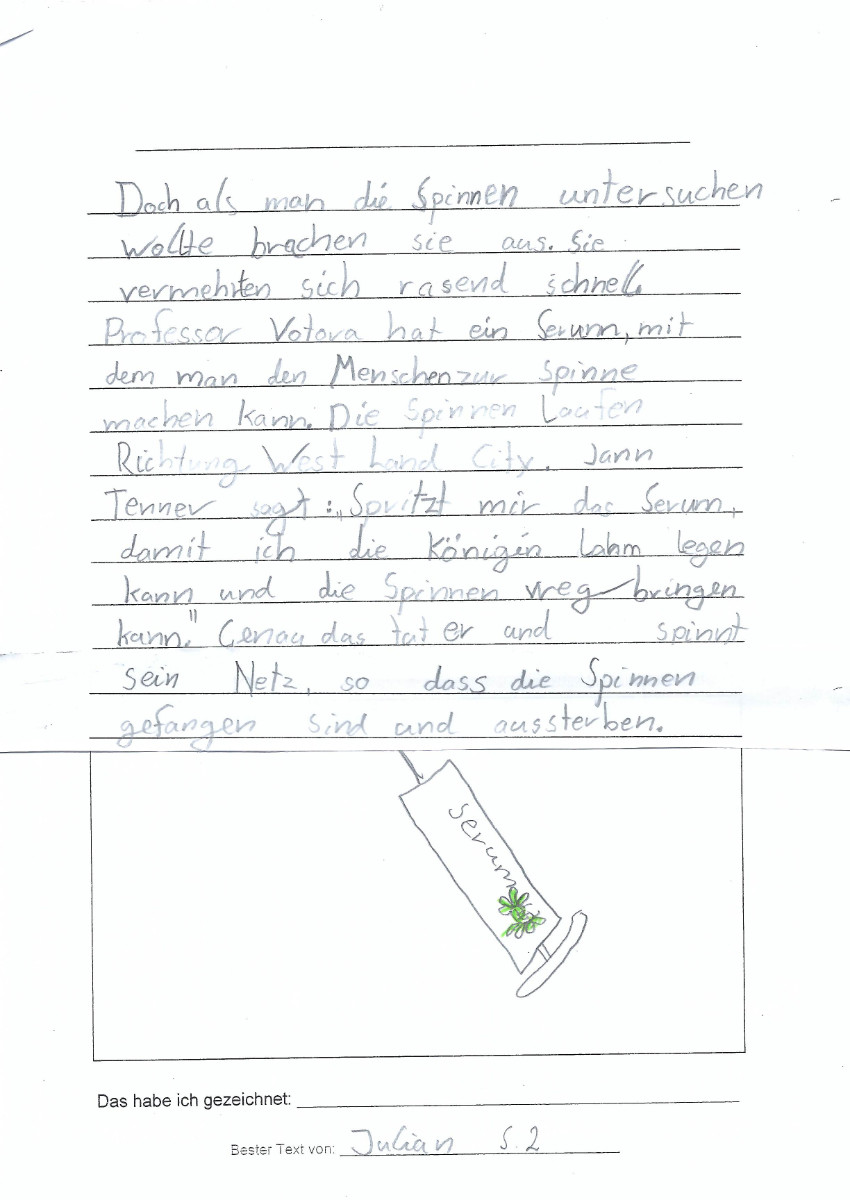 Doch als man die Spinnen untersuchen
wollte brachen sie aus. Sie
vermehrten sich rasend schnell
Professor Votava hat ein Serum, mit
dem man den Menschen zur Spinne
machen kann. Die Spinnen Laufen
Richtung West Land City. Jann
Tenner sagt: „Spritzt mir das Serum,
damit ich die Königin Lahm legen
kann und die Spinnen weg bringen
kann." Genau das tat er und spinnt
sein Netz, so dass die Spinnen
gefangen sind und aussterben.
Serum
Das habe ich gezeichnet:
Bester Text von: Julian S. 2